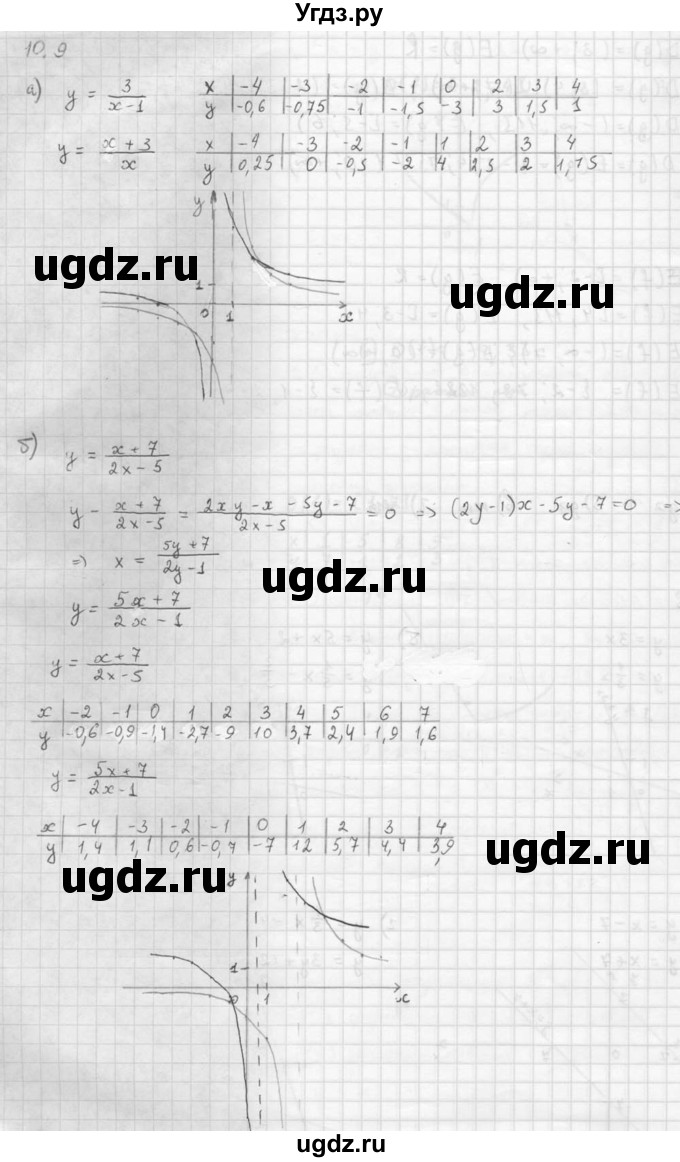 Угдз.ру
10.9
а) y = 3/(x-1)
x | -4 | -3 | -2 | -1 | 0 | 2 | 3 | 4
y | -0,6 | -0,75 | -1 | -1,5 | -3 | 3 | 1,5 | 1
y = (x+3)/x
x | -4 | -3 | -2 | -1 | 1 | 2 | 3 | 4
y | 0,25 | 0 | -0,5 | -2 | 4 | 2,5 | 2 | 1,75
y
ugdz.ru
ugdz.ru
1
0 1 x
б) y = (x+7)/(2x-5)
y - (x+7)/(2x-5) = (2xy-x-5y-7)/(2x-5) = 0 => (2y-1)x-5y-7=0 =>
=> x = (5y+7)/(2y-1)
ugdz.ru
y = (5x+7)/(2x-1)
y = (x+7)/(2x-5)
x | -2 | -1 | 0 | 1 | 2 | 3 | 4 | 5 | 6 | 7
y | -0,6 | -0,9 | -1,4 | -2,7 | -9 | 10 | 3,7 | 2,4 | 1,9 | 1,6
y = (5x+7)/(2x-1)
x | -4 | -3 | -2 | -1 | 0 | 1 | 2 | 3 | 4
y | 1,4 | 1,1 | 0,6 | -0,7 | -7 | 12 | 5,7 | 4,4 | 3,9
ugdz.ru
ugdz.ru
y
1
0 1 x
ugdz.ru